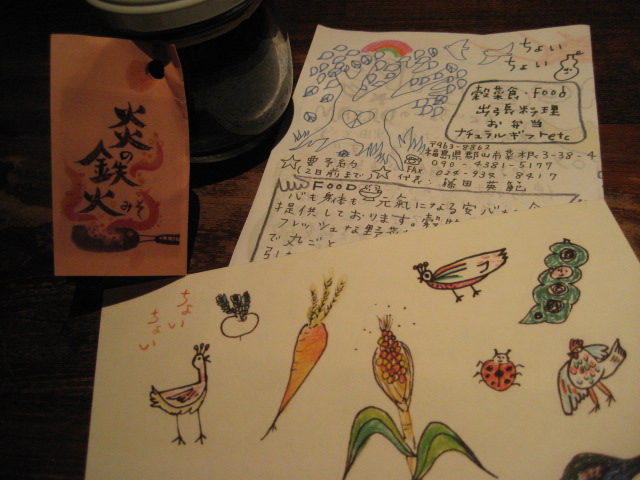 炎の
鉄
火みそ
ちょい
ちょい
穀菜食・Food
出張料理
お弁当
ナチュラルギフトetc
〒963-8862
福島県郡山市菜根3-38-4
☆要予約
(2日前まで)☆
090-4381-5177
FAX 024-934-8417
代表
FOOD
心も身体も元氣になる安心
提供しております。穀
フレッシュな野菜
で丸ごと
ちょい
ちょい